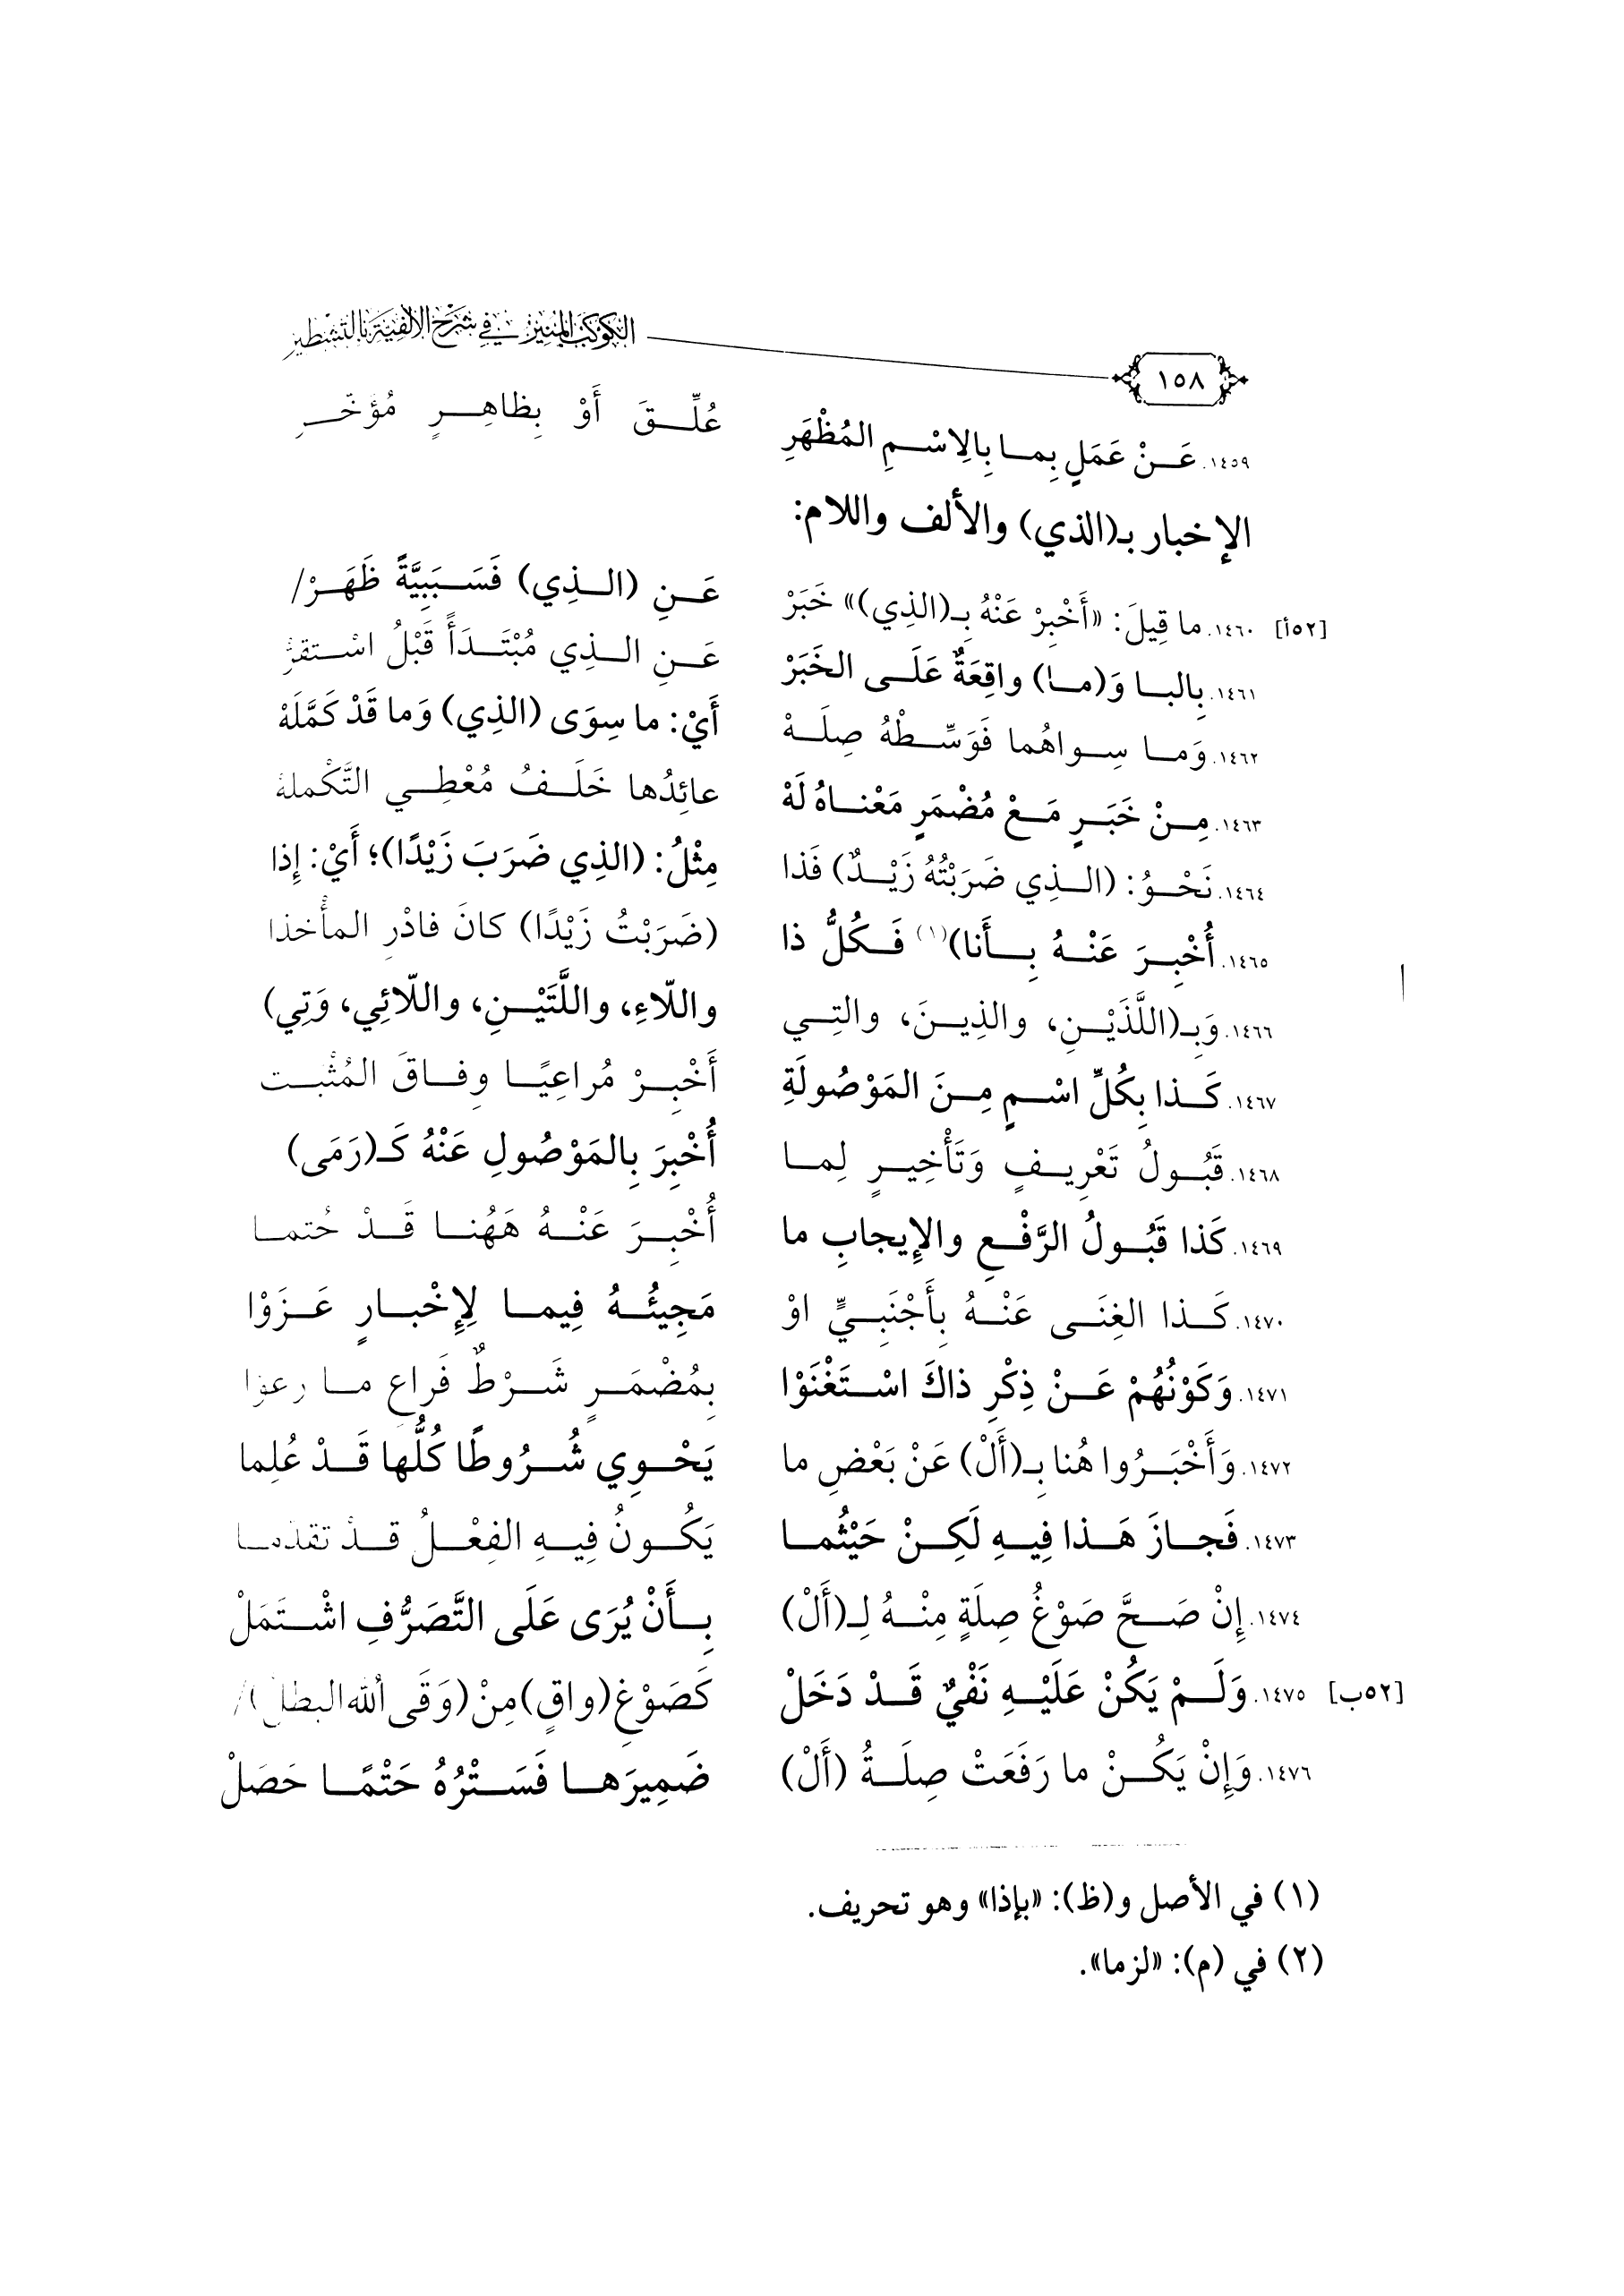 الكوكب المنير في شرح الألفية بالتشطير
١٥٨
١٤٥٩. عَنْ عَمَلٍ بِما بِالِاسْمِ المُظْهَرِ عُلِّقَ أَوْ بِظاهِرٍ مُؤَخَّرِ
الإخبار بـ(الذي) والألف واللام:
[٥٢أ] ١٤٦٠. ما قِيلَ: «أَخْبِرْ عَنْهُ بِـ(الذِي)» خَبَرْ عَنِ (الذِي) فَسَبَبِيَّةً ظَهَرْ/
١٤٦١. بِالبا وَ(ما) واقِعَةٌ عَلَى الخَبَرْ عَنِ الذِي مُبْتَدَأً قَبْلُ اسْتَقَرّْ
١٤٦٢. وَما سِواهُما فَوَسِّطْهُ صِلَهْ أَيْ: ما سِوَى (الذِي) وَما قَدْ كَمَّلَهْ
١٤٦٣. مِنْ خَبَرٍ مَعْ مُضْمَرٍ مَعْناهُ لَهْ عائِدُها خَلَفُ مُعْطِي التَّكْمِلَهْ
١٤٦٤. نَحْوُ: (الذِي ضَرَبْتُهُ زَيْدٌ) فَذا مِثْلُ: (الذِي ضَرَبَ زَيْدًا)؛ أَيْ: إِذا
١٤٦٥. أُخْبِرَ عَنْهُ بِأَنا)(١) فَكُلُّ ذا (ضَرَبْتُ زَيْدًا) كانَ فادْرِ المأْخذا
١٤٦٦. وَبِـ(اللَّذَيْنِ، والذِينَ، والتِي واللّاءِ، واللَّتَيْنِ، واللّائِي، وَتِي)
١٤٦٧. كَذا بِكُلِّ اسْمٍ مِنَ المَوْصُولَةِ أَخْبِرْ مُراعِيًا وِفاقَ المُثْبتِ
١٤٦٨. قَبُولُ تَعْرِيفٍ وَتَأْخِيرٍ لِما أُخْبِرَ بِالمَوْصُولِ عَنْهُ كَـ(رَمَى)
١٤٦٩. كَذا قَبُولُ الرَّفْعِ والإِيجابِ ما أُخْبِرَ عَنْهُ هَهُنا قَدْ حُتِما
١٤٧٠. كَذا الغِنَى عَنْهُ بِأَجْنَبِيٍّ اوْ مَجِيئُهُ فِيما لِإِخْبارٍ عَزَوْا
١٤٧١. وَكَوْنُهُمْ عَنْ ذِكْرِ ذاكَ اسْتَغْنَوْا بِمُضْمَرٍ شَرْطٌ فَراعِ ما رعوْا
١٤٧٢. وَأَخْبَرُوا هُنا بِـ(أَلْ) عَنْ بَعْضِ ما يَحْوِي شُرُوطًا كُلُّها قَدْ عُلِما
١٤٧٣. فَجازَ هَذا فِيهِ لَكِنْ حَيْثُما يَكُونُ فِيهِ الفِعْلُ قدْ تقدّما
١٤٧٤. إِنْ صَحَّ صَوْغُ صِلَةٍ مِنْهُ لِـ(أَلْ) بِأَنْ يُرَى عَلَى التَّصَرُّفِ اشْتَمَلْ
[٥٢ب] ١٤٧٥. وَلَمْ يَكُنْ عَلَيْهِ نَفْيٌ قَدْ دَخَلْ كَصَوْغِ (واقٍ) مِنْ (وَقَى اللهُ البطلْ)/
١٤٧٦. وَإِنْ يَكُنْ ما رَفَعَتْ صِلَةُ (أَلْ) ضَمِيرَها فَسَتْرُهُ حَتْمًا حَصَلْ
(١) في الأصل و(ظ): «بإذا» وهو تحريف.
(٢) في (م): «لزما».